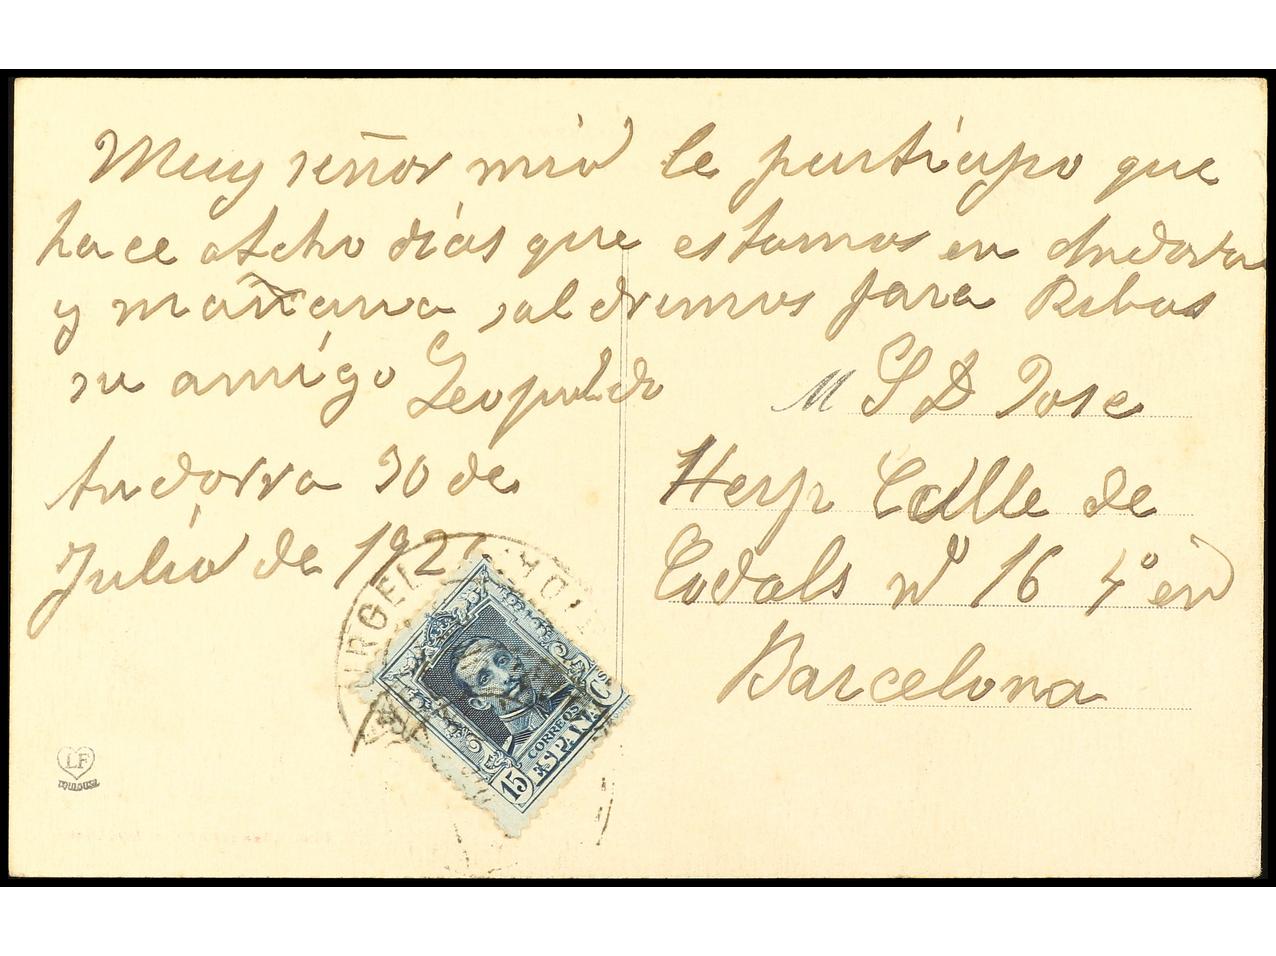 Muy señor mío le partisipo que
hace otcho días que estamos en Andorra
y mañana saldremos para Ribas
su amigo Leopoldo
M S D Jose
Andorra 30 de
Herp Calle de
Julio de 192
Codols nº 16 4º en
Barcelona
URGEL
CORREOS
ESPAÑA
15 Cs
LF
TOULOUSE